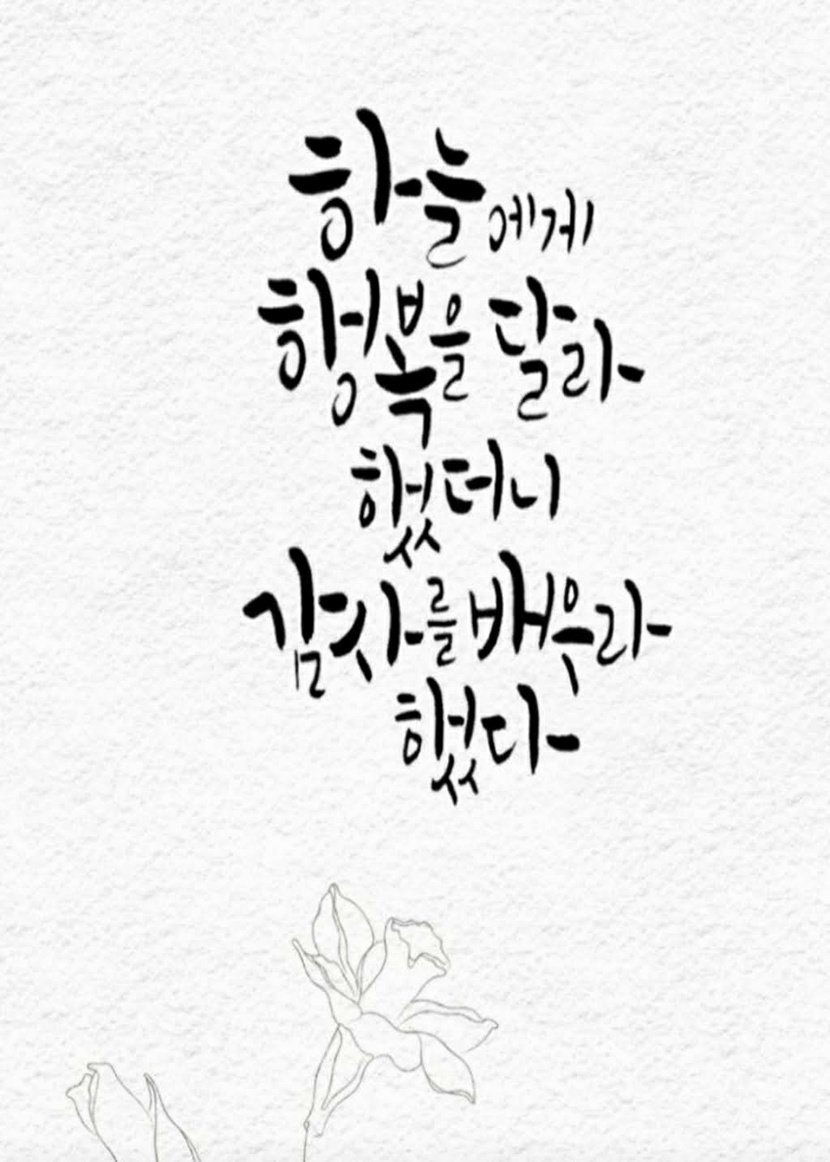 하늘에게
행복을 달라
했더니
감사를 배우라
했다